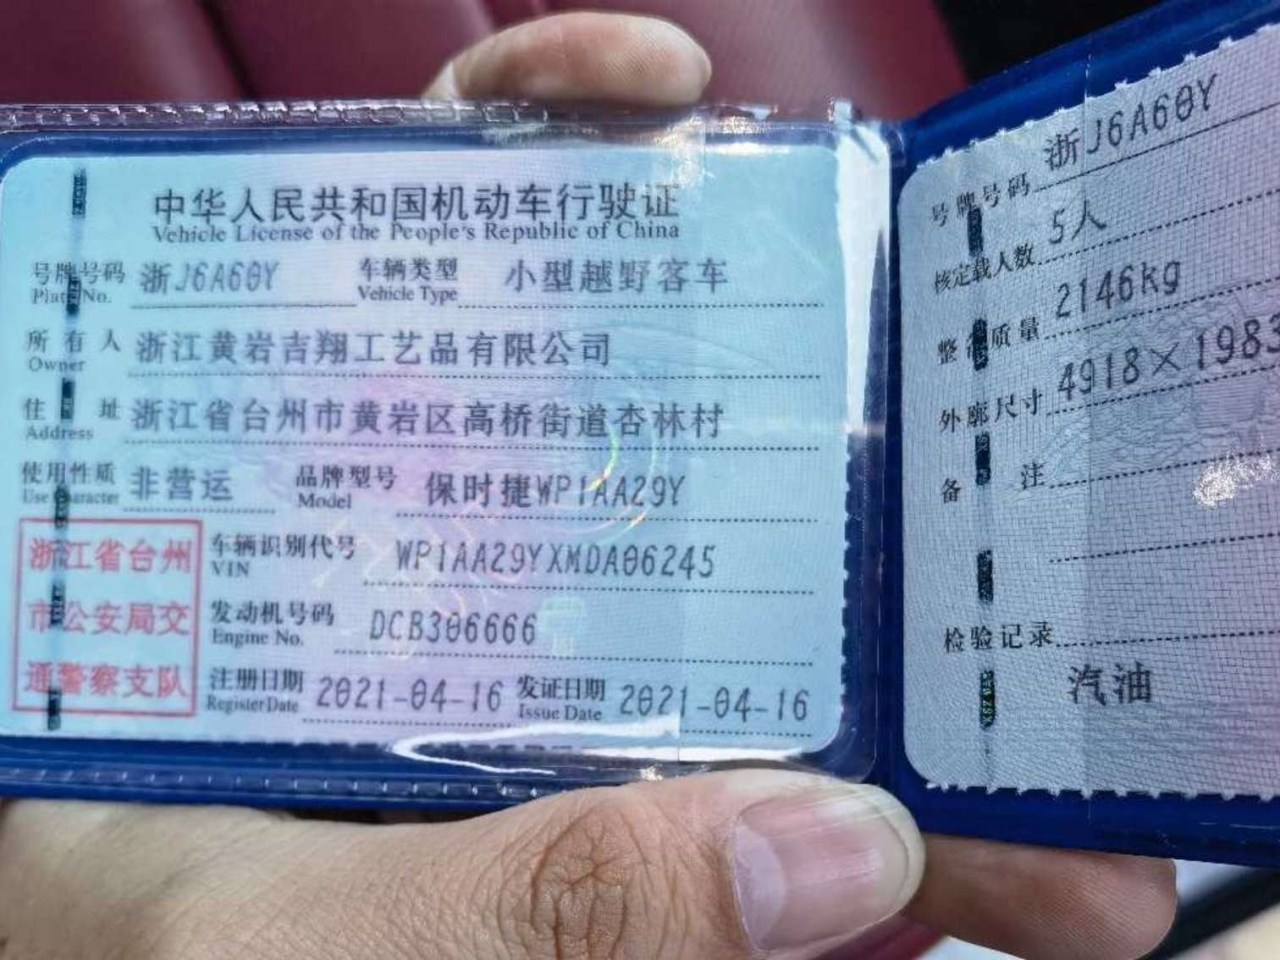 中华人民共和国机动车行驶证
Vehicle License of the People's Republic of China
号牌号码 浙J6A60Y 车辆类型 小型越野客车
Plate No. Vehicle Type
所有人 浙江黄岩吉翔工艺品有限公司
Owner
住址 浙江省台州市黄岩区高桥街道杏林村
Address
使用性质 非营运 品牌型号 保时捷WP1AA29Y
Use Character Model
浙江省台州
市公安局交
通警察支队
车辆识别代号 WP1AA29YXMDA06245
VIN
发动机号码 DCB306666
Engine No.
注册日期 2021-04-16 发证日期 2021-04-16
Register Date Issue Date
号牌号码 浙J6A60Y
核定载人数 5人
整备质量 2146kg
外廓尺寸 4918×1983
备注
检验记录
汽油